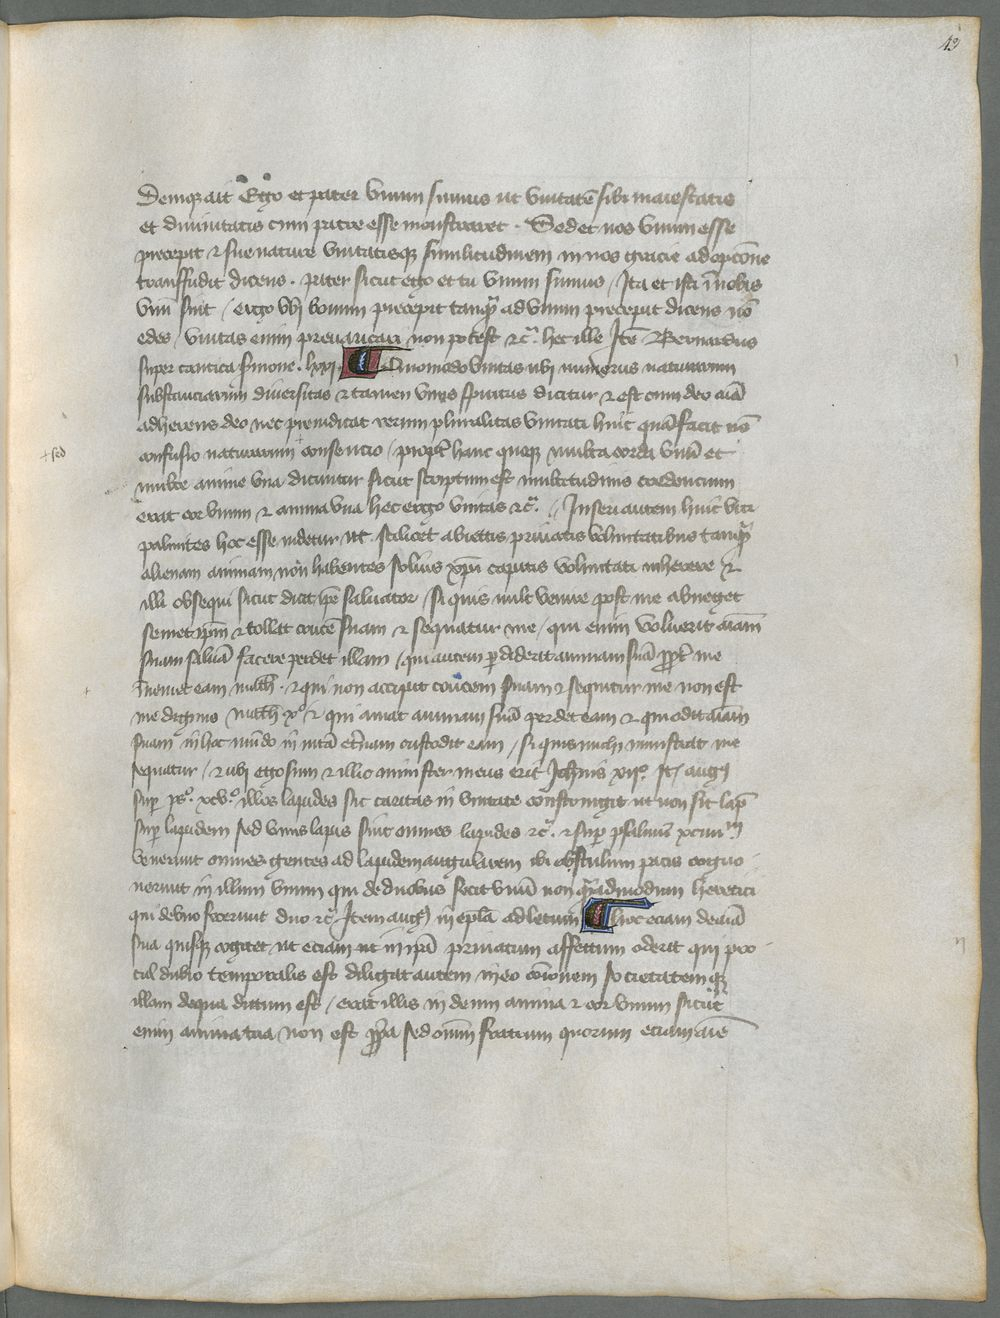 43
Deniq̄ ait Ego et pater vnum sumus ut vnitatē sibi maiestatis
et diuinitatis cum patre esse monstraret . Sed et nos vnum esse
precepit ⁊ sue nature vnitatisq̄ similitudinem in nos gracie adopcōne
transfudit dicens . pater sicut ego et tu vnum sumus / Ita et isti ī nobis
vnū sint / ergo vbi bonum precepit tanq̄ ad vnum precepit dicens nō
edes / vnitas enim preuaricari non potest ⁊c̄ hec ille Itē Bernardus
super cantica s̄mone . lxxi . Quomodo vnitas ubi numerus naturarum
substanciarum diuersitas ⁊ tamen vnus spiritus dicitur ⁊ est cum deo aīa
adherens deo nec preiudicat rerum pluralitas vnitati huic quā facit nō
confusio naturarum + consensio / propt̄ hanc quoq̄ multa corda vnū et
+ sed
multe anime vna dicuntur sicut scriptum est multitudinis credencium
erat cor vnum ⁊ anima vna hec ergo vnitas ⁊c̄ . // Inseri autem huic viti
palmites hoc esse videtur ut scilicet abiectis priuatis voluntatibus tanq̄
alienam animam non habentes solius xp̄i capitis voluntati inherere ⁊
illi obsequi sicut dicit ip̄e saluator / si quis vult venire post me abneget
semet ip̄m ⁊ tollat crucē suam ⁊ sequatur me / qui enim voluerit aīam
suam saluā facere perdet illam / qui autem p̄diderit animam suā p̄pt̄ me
inueniet eam math̄ . ⁊ qui non accipit crucem suam ⁊ sequitur me non est
me dignus math̄ xº ⁊ qui amat animam suā perdet eam ⁊ qui odit aīam
suam in hoc mūdo in vitā et̄nam custodit eam / si quis michi ministrat me
sequatur / ⁊ ubi ego sum ⁊ illic minister meus erit Joh̄nis xijº . It̄ aug⁹
sup̄ psº . xcvº . illos lapides sic caritas in vnitate constringit ut non sit lap̄
sup̄ lapidem sed vnus lapis sint omnes lapides ⁊c̄ . ⁊ sup̄ psalmū
venerunt omnes gentes ad lapidem angularem ibi osculum pacis cogno
uerunt in illum vnum qui de duobus fecit vnū non q̄admodum heretici
qui de vno fecerunt duo ⁊c̄ Item aug⁹ in ep̄la ad letum hoc eciam de aīa
sua quisq̄ cogitet ut eciam ut in ip̄a priuatum affectum oderit qui pro
cul dubio temporalis est diligat autem in eo cōionem societatemq̄
illam de qua dictum est / erat illis in deum anima ⁊ cor vnum sicut
enim anima tua non est p̄pa sed omn̄m fratrum quorum eciam aīe